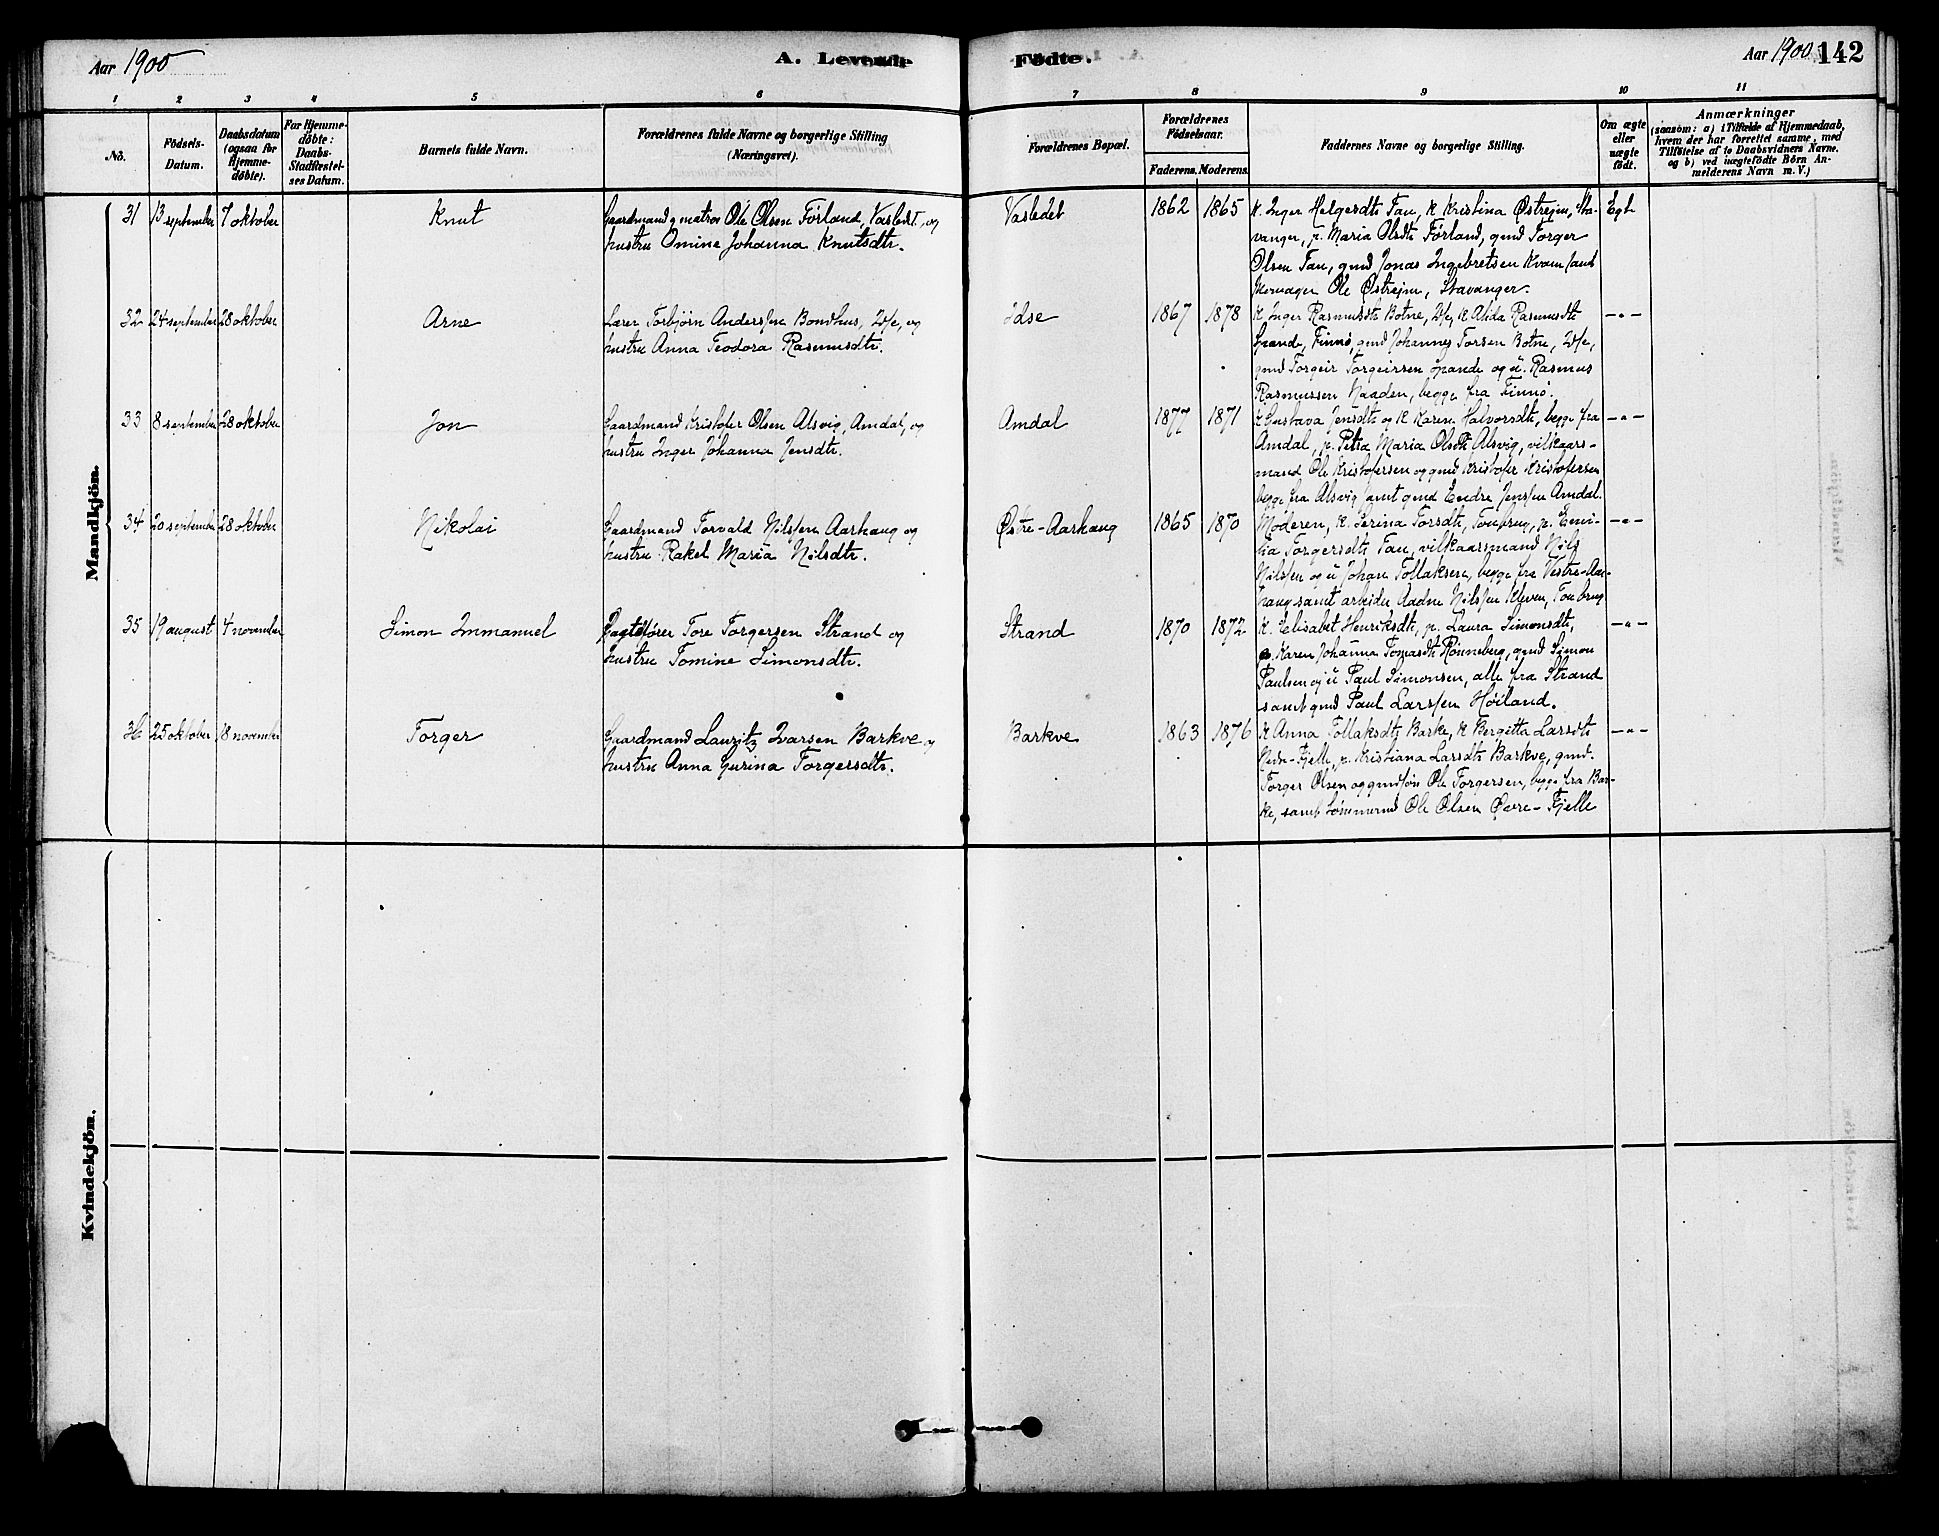 Aar 1900
A. Levende Födte.
Aar 1900
142
1 2 3 4 5 6 7 8 9 10 11
No.
Födsels-
Datum.
Daabsdatum
(ogsaa for
Hjemme-
döbte).
For Hjemme-
döbte:
Daabs-
Stadfæstel-
ses Datum.
Barnets fulde Navn.
Forældrenes fulde Navne og borgerlige Stilling
(Næringsvei).
Forældrenes Bopæl.
Forældrenes
Födselsaar.
Faderens. Moderens.
Faddernes Navne og borgerlige Stilling.
Om ægte
eller
uægte
födt.
Anmærkninger
(saasom: a) i Tilfælde af Hjemmedaab,
hvem der har forrettet samme, med
Tilföielse af to Daabsvidners Navne.
og b) ved uægtefödte Börn An-
melderens Navn m. V.)
Mandkjön.
31 13 september 7 oktober Knut
Gaardmand og matros Ole Olsen Førland, Vasledet, og
hustru Omine Johanna Knutsdtr.
Vasledet 1862 1865
K. Inger Helgesdtr Tau, K Kristina Østrejm, Sta-
vanger, p. Maria Olsdtr Førland, gmd Torger
Olsen Tau, gmd Jonas Ingebretsen Kvam samt
Ole Østrejm, Stavanger.
Egt
32 24 september 28 oktober Arne
Lærer Torbjørn Anderssen Bondhus, Idse, og
hustru Anna Teodora Rasmusdtr.
Idse 1867 1878
K Inger Rasmusdtr Botne, Idse, K Alida Rasmusdtr
Spande, Finnø, gmd Johannes Torsen Botne, Idse,
gmd Torgeir Torgeirsen Spande og u. Rasmus
Rasmussen Naaden, begge fra Finnø.
—"—
33 8 september 28 oktober Jon
Gaardmand Kristofer Olsen Alsvig, Amdal, og
hustru Inger Johanna Jensdtr.
Amdal 1877 1871
K Gustava Jensdtr og K Karen Halvorsdtr, begge fra
Amdal, p. Petra Maria Olsdtr Alsvig, vilkaars-
mand Ole Kristofersen og gmd Kristofer Kristofersen
begge fra Alsvig samt gmd Endre Jenssen Amdal.
—"—
34 20 september 28 oktober Nikolai
Gaardmand Torvald Nilssen Aarhaug og
hustru Rakel Maria Nilsdtr.
Østre-Aarhaug 1865 1870
Moderen, K. Serina Torsdtr, Toubrug, p. Emi-
lia Torgersdtr Tau, vilkaarsmand Nils
Nilssen og u Johan Tollaksen, begge fra Vestre-Aar-
haug samt arbeider Aadne Nilssen Kleven, Toubrug
—"—
35 19 august 4 november Simon Immanuel
Jagtefører Tore Torgersen Strand og
hustru Tomine Simonsdtr.
Strand 1870 1872
K. Elisabet Henriksdtr, p. Laura Simonsdtr,
p. Karen Johanna Tomasdtr Rønneberg, gmd Simon
Paulsen og u Paul Simonsen, alle fra Strand
samt gmd Paul Larssen Høiland.
—"—
36 25 oktober 18 november Torger
Gaardmand Lauritz Ivarsen Barkve og
hustru Anna Gurina Torgersdtr.
Barkve 1863 1876
K Anna Tollaksdtr Barke, K Bergitta Larsdtr
Nedre-Fjelle, p. Kristiana Larsdtr Barkve, gmd.
Torger Olsen og gmdsøn Ole Torgersen, begge fra Bar-
ke, samt tømmermd Ole Olsen Øvre-Fjelle
—"—
Kvindekjön.